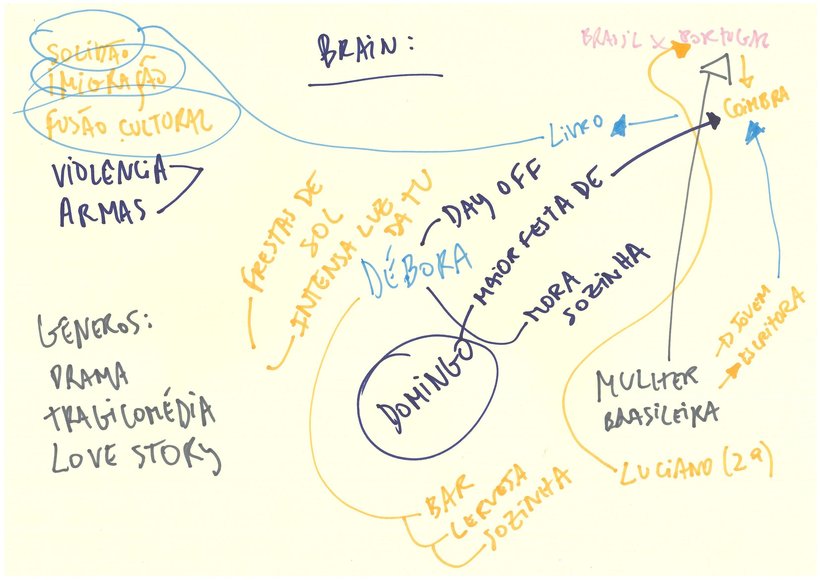 BRAIN:
SOLIDÃO
IMIGRAÇÃO
FUSÃO CULTURAL
VIOLENCIA
ARMAS
BRASIL X PORTUGAL
COIMBRA
LIVRO
DAY OFF
MAIOR FESTA DE
FRESTAS DE
SOL
INTENSA LUZ
DA TV
DÉBORA
MORA
SOZINHA
DOMINGO
JOVEM
ESCRITORA
GÊNEROS:
DRAMA
TRAGICOMÉDIA
LOVE STORY
MULHER
BRASILEIRA
LUCIANO (2ª)
BAR
CERVEJA
SOZINHA